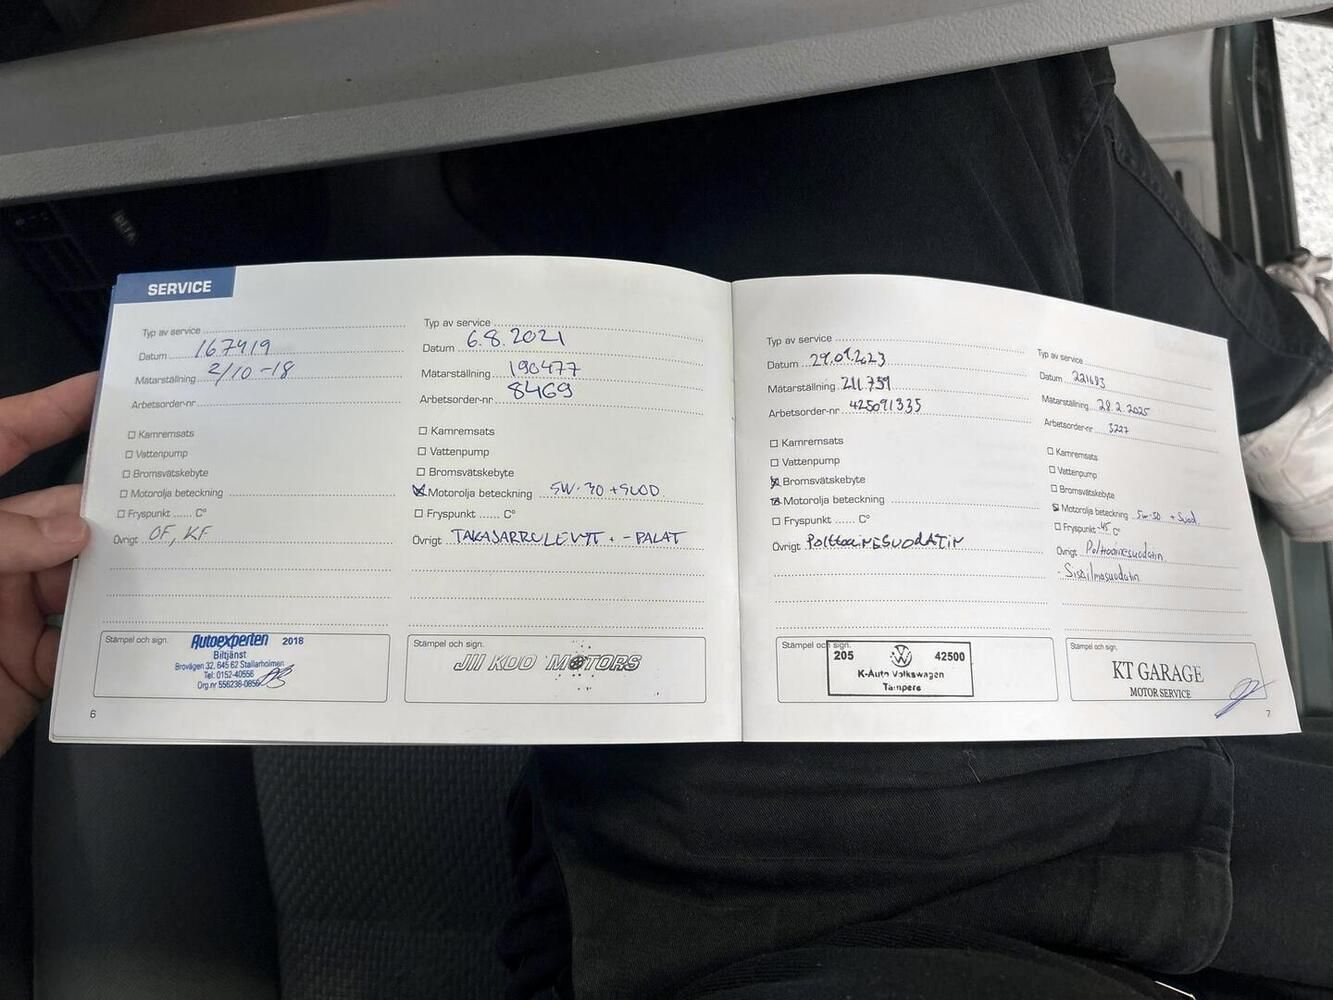 SERVICE
Typ av service
Datum 167419
Mätarställning 2/10 -18
Arbetsorder-nr
☐ Kamremsats
☐ Vattenpump
☐ Bromsvätskebyte
☐ Motorolja beteckning
☐ Fryspunkt ...... C°
Övrigt OF, KF
Stämpel och sign.
Autoexperten 2018
Biltjänst
Brovägen 32, 645 62 Stallarholmen
Tel: 0152-40556
Org.nr 556238-0856
6
Typ av service
Datum 6.8.2021
Mätarställning 190477
Arbetsorder-nr 8469
☐ Kamremsats
☐ Vattenpump
☐ Bromsvätskebyte
☒ Motorolja beteckning 5W-30 + SUOD.
☐ Fryspunkt ...... C°
Övrigt TAKAJARRULEVYT + -PALAT
Stämpel och sign.
JII KOO MOTORS
Typ av service
Datum
Mätarställning 211.759
Arbetsorder-nr 425091335
☐ Kamremsats
☐ Vattenpump
☒ Bromsvätskebyte
☒ Motorolja beteckning
☐ Fryspunkt ...... C°
Övrigt PolttoaiNESUODATIN
Stämpel och sign.
205 42500
K-Auto Volkswagen
Tampere
Typ av service
Datum 221683
Mätarställning 28.2.2025
Arbetsorder-nr 3227
☐ Kamremsats
☐ Vattenpump
☐ Bromsvätskebyte
☒ Motorolja beteckning 5w-30 + Suod
☐ Fryspunkt -45 C°
Övrigt Polttoainesuodatin
- Sisäilmasuodatin
Stämpel och sign.
KT GARAGE
MOTOR SERVICE
7